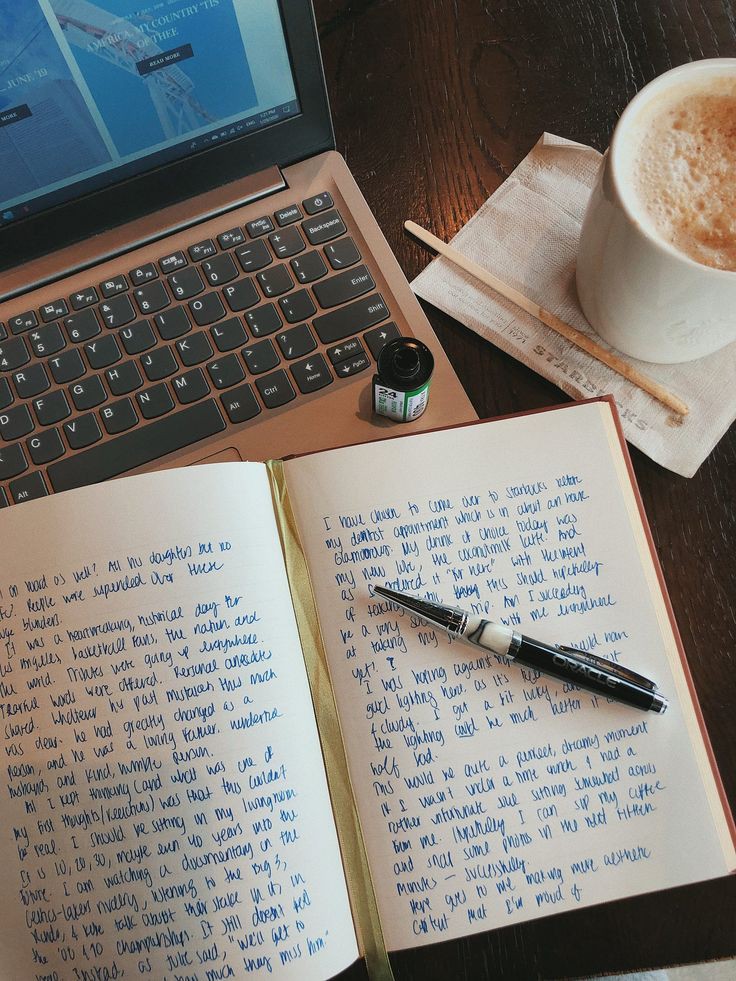 AMERICA, MY COUNTRY 'TIS
OF THEE
READ MORE
JUNE '19
MORE
ENG
1:21 PM
Delete
PrtSc
Insert
F12
F11
F10
F9
F8
F7
Backspace
Enter
Shift
PgUp
PgDn
Home
Ctrl
Alt
Alt
24
STARBUCKS
ORACLE
on board as well? All his daughters but no
people were suspended over these
It was a heartbreaking, historical day for
Los Angeles, basketball fans, the nation and
the world. Tributes were going up everywhere.
Tearful words were offered. Personal anecdotes
shared. Whatever his past mistakes this much
was clear. He had greatly changed as a
person, and he was a loving father, wonderful
husband, and kind, humble person.
All I kept thinking (and what was one of
my first thoughts/reactions) was that this couldn't
be real. I should be sitting in my livingroom
It is 10, 20, 30, maybe even 40 years into the
future. I am watching a documentary on the
Celtics-Lakers rivalry, listening to the Big 3,
Rondo, & Kobe talk about their stake in it, in
the '08 & '10 championship. It still doesn't feel
Instead, as Julie said, "we'll get to
how much they miss him."
I have chosen to come over to Starbucks before
my dentist appointment which is in about an hour
Glamorous. My drink of choice today was
my new love, the coconutmilk latte. And
as I ordered it "for here" with the intent
of taking this should hopefully
be a very And I succeeding
at taking my with me everywhere
yet?
I was hoping against have
lighting here, as it's
& cloudy. I got a bit lucky, and
the lighting much better
half bad.
This would be quite a perfect, dreamy moment
if I wasn't under a time crunch & had a
rather unfortunate soul sitting somewhat across
from me. Hopefully I can sip my coffee
and snag some photos in the next fifteen
minutes — successfully.
Here goes to me making more aesthetic
content that I'm proud of